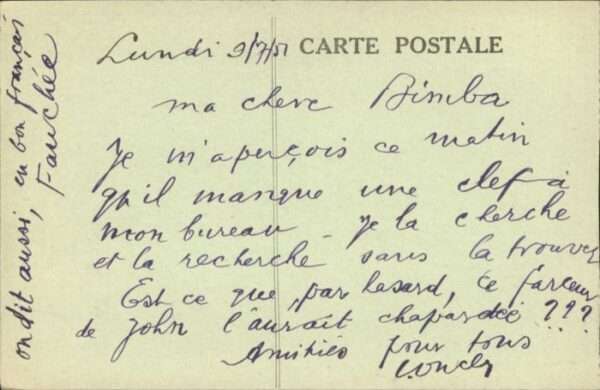 Lundi 9/7/51 CARTE POSTALE
ma chere Bimba
Je m'aperçois ce matin
qu'il manque une clef à
mon bureau - je la cherche
et la recherche sans la trouver
Est ce que, par hasard, ce farceur
de John l'aurait chapardée ???
Amitiés pour tous
on dit aussi, en bon français
Fauchée